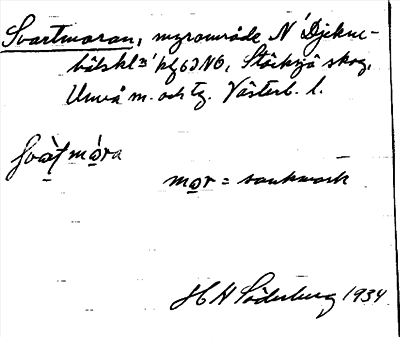 Svartmoran, myrområde N Djekne-
bålskl kf 63 NO, Stöcksjö skog,
Umeå m. och tg. Västerb. l.
svàt̀ mo̱ra
mo̱r = sankmark
H H Söderberg 1934